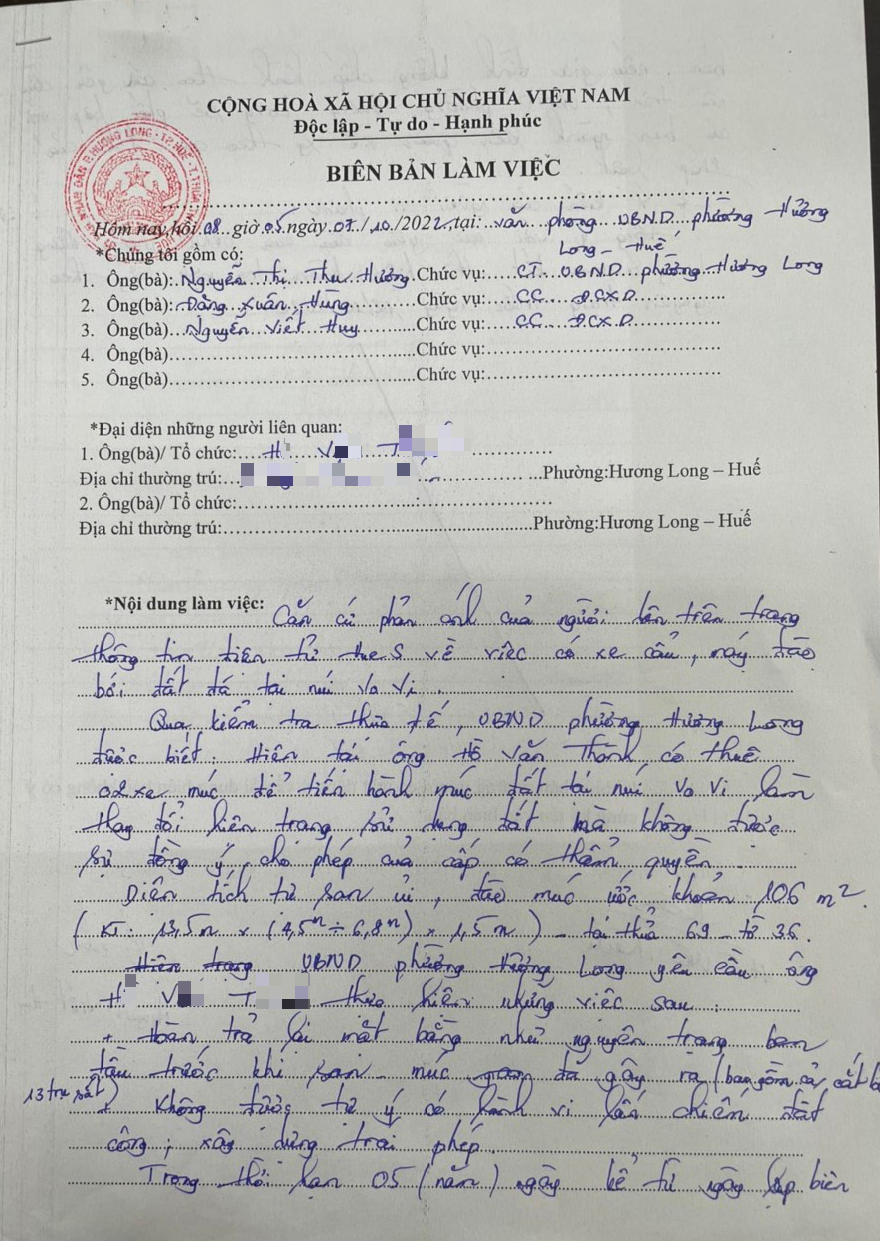 CỘNG HOÀ XÃ HỘI CHỦ NGHĨA VIỆT NAM
Độc lập - Tự do - Hạnh phúc
BIÊN BẢN LÀM VIỆC
Hôm nay, hồi 08 giờ 05 ngày 07/10/2022, tại: văn phòng UBND phường Hương
Long - Huế
*Chúng tôi gồm có:
1. Ông(bà): Nguyễn Thị Thu Hương Chức vụ: CT. UBND phường Hương Long
2. Ông(bà): Đặng Xuân Hùng Chức vụ: CC ĐCXD
3. Ông(bà): Nguyễn Viết Huy Chức vụ: CC ĐCXD
4. Ông(bà) Chức vụ:
5. Ông(bà) Chức vụ:
*Đại diện những người liên quan:
1. Ông(bà)/ Tổ chức:
Địa chỉ thường trú: Phường:Hương Long – Huế
2. Ông(bà)/ Tổ chức:
Địa chỉ thường trú: Phường:Hương Long – Huế
*Nội dung làm việc: Căn cứ phản ánh của người dân trên trang
thông tin điện tử Hue S về việc có xe cẩu, máy đào
bới đất đá tại núi Vo Vi.
Qua kiểm tra thực tế, UBND phường Hương Long
được biết: Hiện tại ông Hồ Văn Thành có thuê
02 xe múc để tiến hành múc đất tại núi Vo Vi làm
thay đổi hiện trạng sử dụng đất mà không được
sự đồng ý, cho phép của cấp có thẩm quyền.
Diện tích tự san ủi, đào múc ước khoản 106 m².
(KT: 13,5m x (4,5m ÷ 6,8m) x 1,5m) - tại thửa 69 - tờ 36.
UBND phường Hương Long yêu cầu ông
H V T thực hiện những việc sau:
+ Hoàn trả lại mặt bằng như nguyên trạng ban
đầu trước khi san múc đã gây ra (bao gồm cả cắt bỏ
13 trụ sắt)
+ Không được tự ý có hành vi lấn chiếm đất
công, xây dựng trái phép.
Trong thời hạn 05 (năm) ngày kể từ ngày lập biên